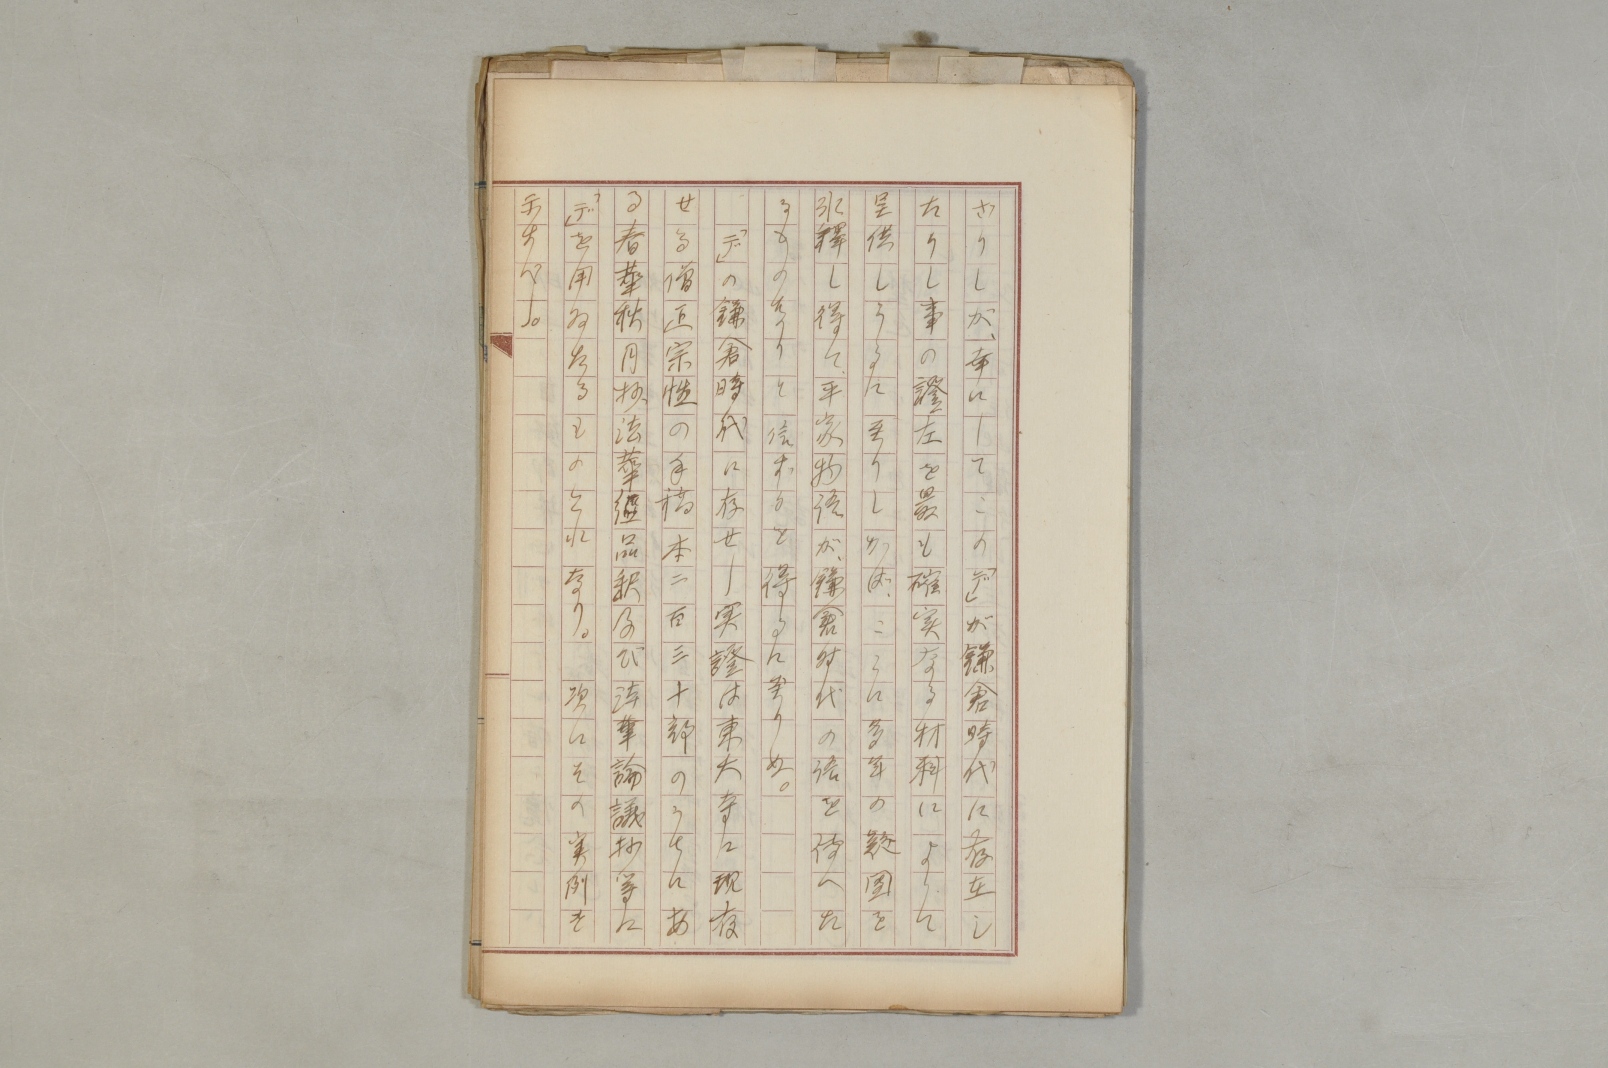 さりしが、幸にしてこの「デ」が鎌倉時代に存在し
たりし事の證左を最も確実なる材料によりて
呈供しうるに至りしかば、ここに多年の疑團を
氷釋し得て、平家物語が、鎌倉時代の語を傳へた
るものなりと信ずるを得るに至りぬ。
「デ」の鎌倉時代に存せし実證は東大寺に現存
せる僧正宗性の手稿本二百三十部のうちにあ
る春華秋月抄、法華経品釈及び法華論議抄等に
「デ」を用ゐたるものそれなり。次にその実例を
示すべし。